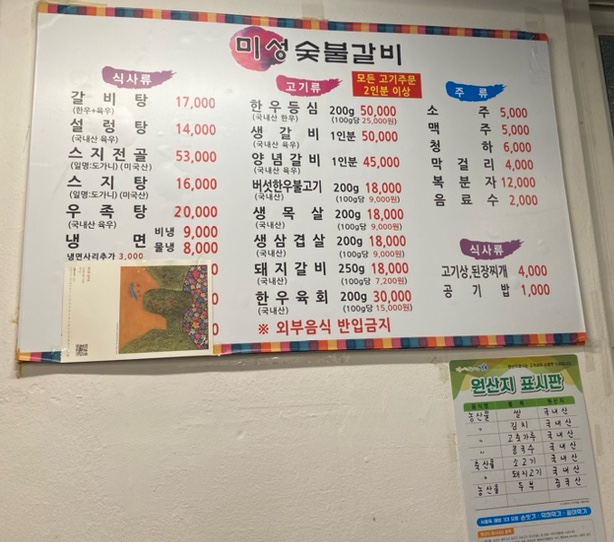 미성 숯불갈비
식사류
갈비탕 17,000
(한우+육우)
설렁탕 14,000
(국내산 육우)
스지전골 53,000
(일명:도가니) (미국산)
스지탕 16,000
(일명:도가니) (미국산)
우족탕 20,000
(국내산 육우)
냉면 비냉 9,000
물냉 8,000
냉면사리추가 3,000
고기류
모든 고기주문
2인분 이상
한우등심 200g 50,000
(국내산 한우) (100g당 25,000원)
생갈비 1인분 50,000
(국내산 육우)
양념갈비 1인분 45,000
(국내산 육우)
버섯한우불고기 200g 18,000
(국내산) (100g당 9,000원)
생목살 200g 18,000
(국내산) (100g당 9,000원)
생삼겹살 200g 18,000
(국내산) (100g당 9,000원)
돼지갈비 250g 18,000
(국내산) (100g당 7,200원)
한우육회 200g 30,000
(국내산) (100g당 15,000원)
※ 외부음식 반입금지
주류
소주 5,000
맥주 5,000
청하 6,000
막걸리 4,000
복분자 12,000
음료수 2,000
식사류
고기상,된장찌개 4,000
공기밥 1,000
원산지 표시판
음식명 품목 원산지
농산물 쌀 국내산
〃 김치 국내산
〃 고춧가루 국내산
〃 콩국수 국내산
축산물 소고기 국내산
〃 돼지고기 국내산
농산물 두부 중국산